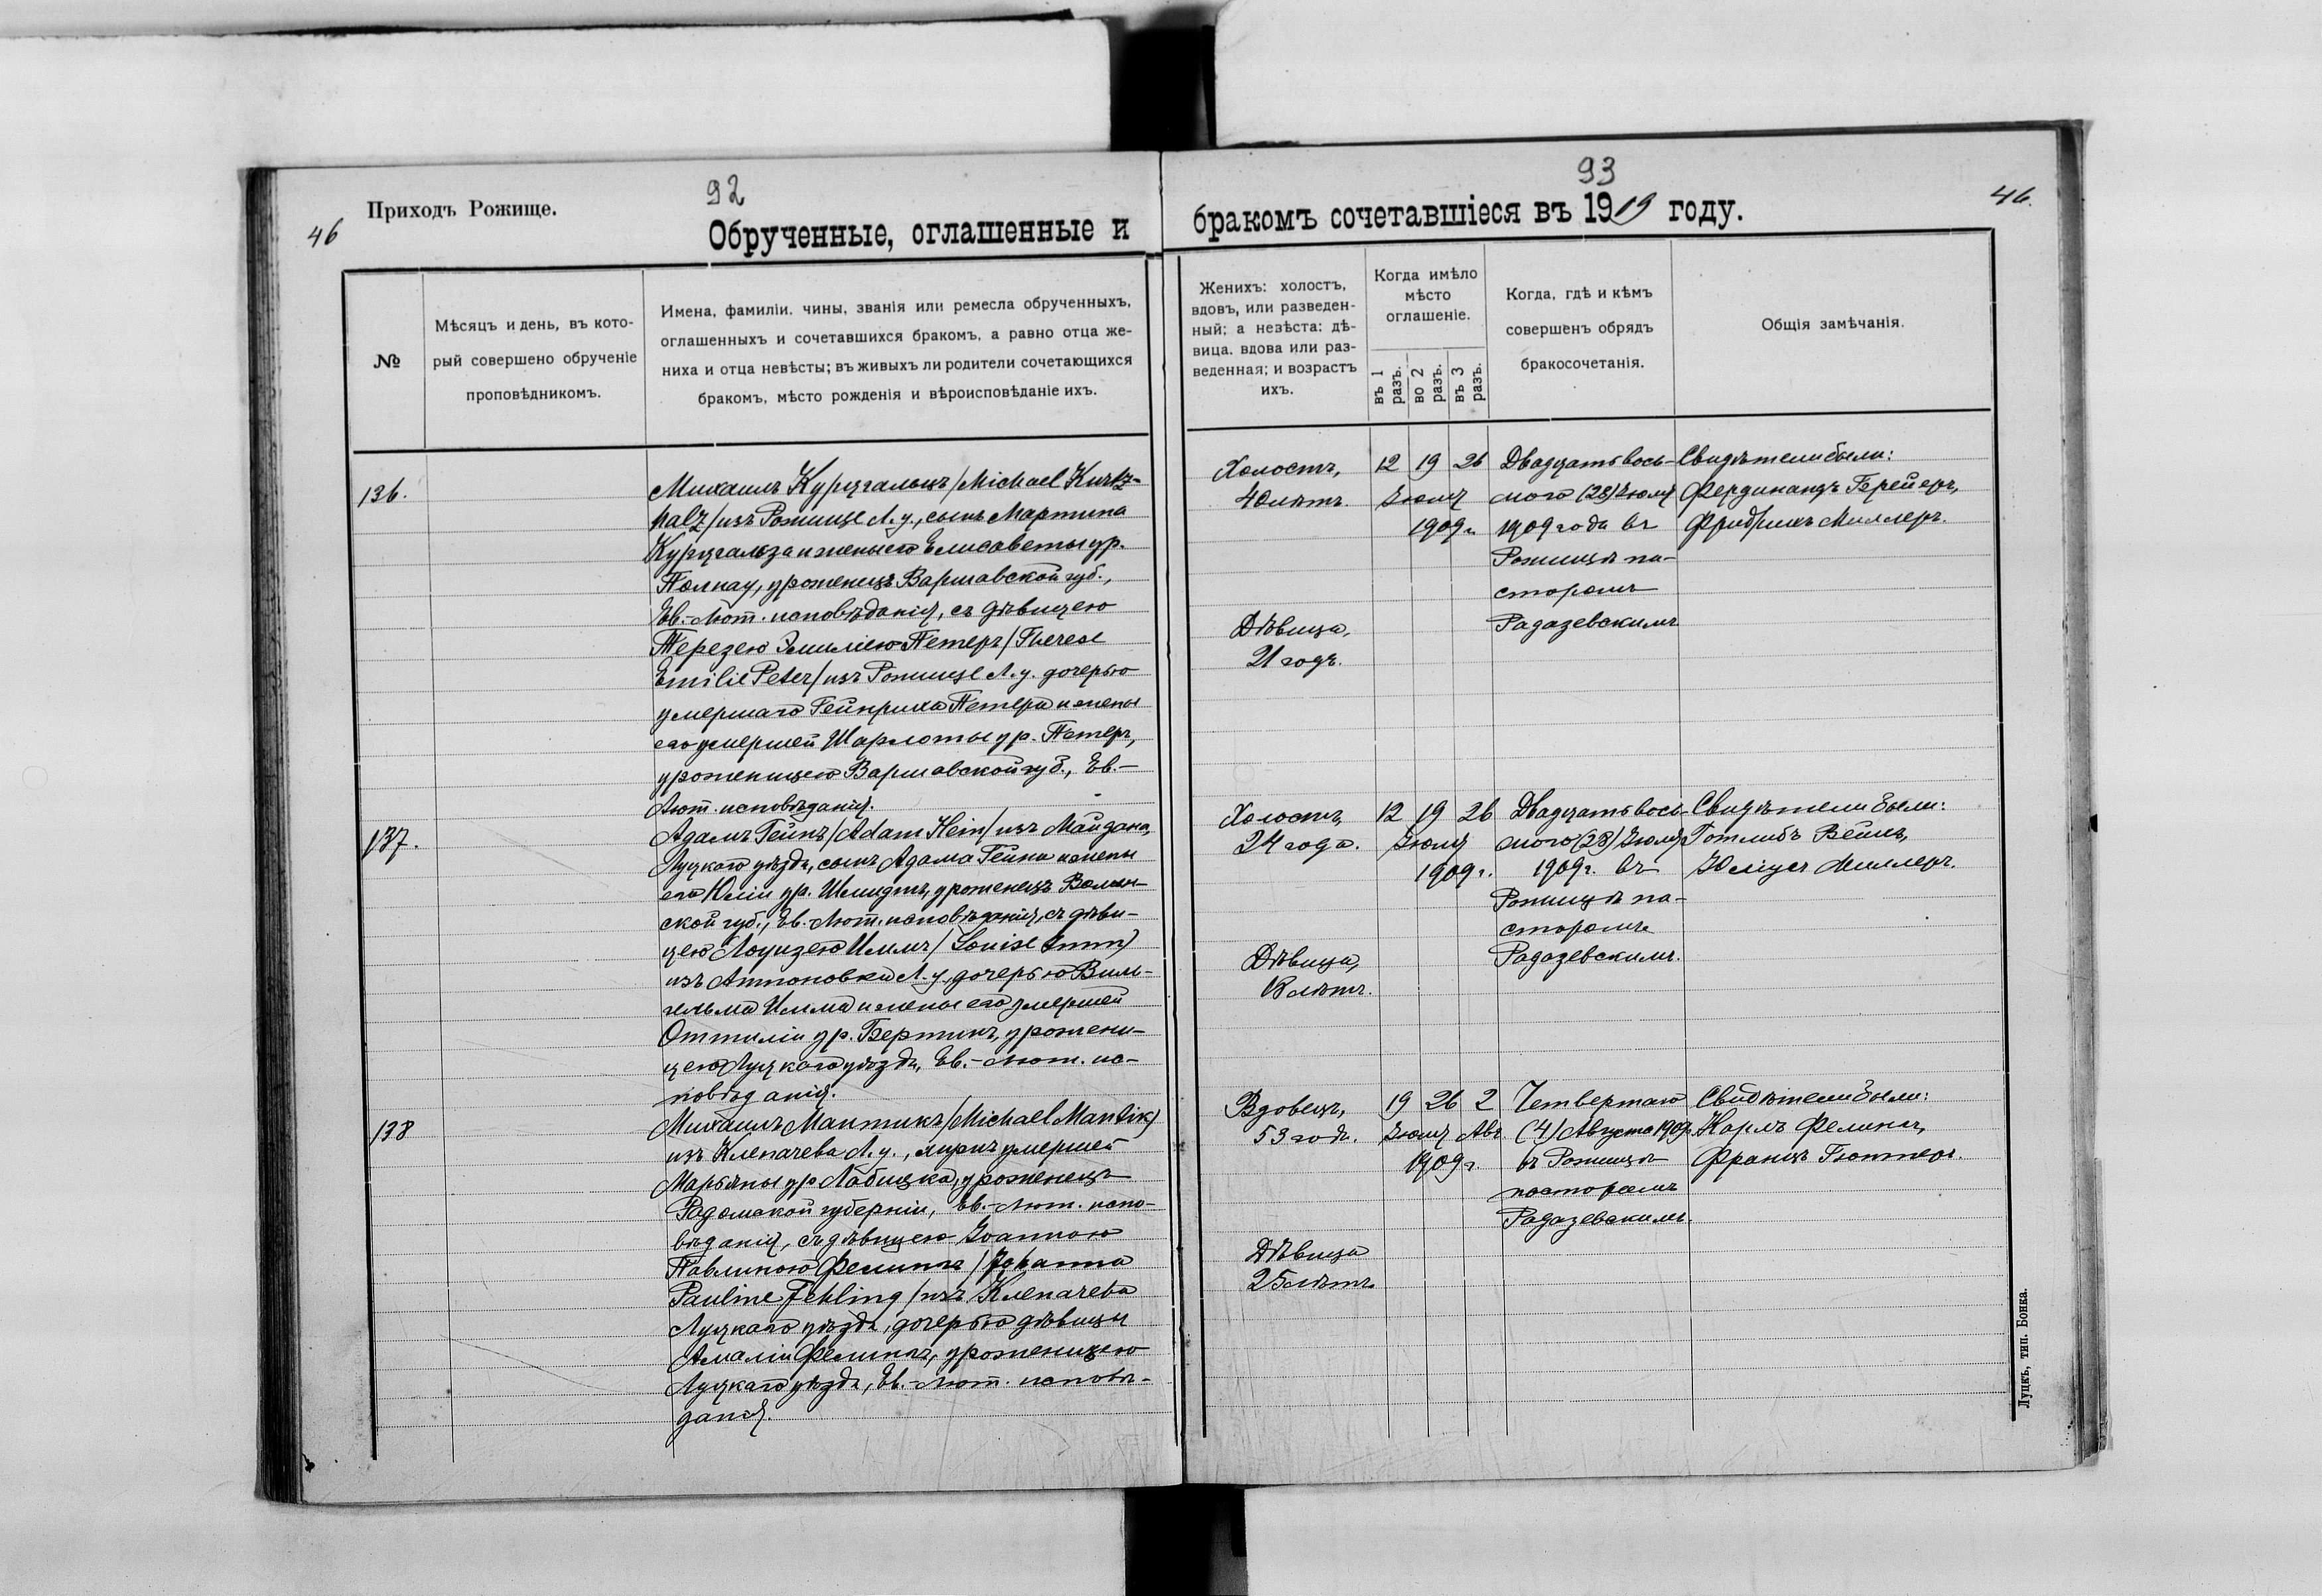 92
93
Приходъ Рожище.
46
46.
Обрученные, оглашенные и
бракомъ сочетавшіеся въ 1919 году.
№
Мѣсяцъ и день, въ кото-
рый совершено обрученіе
проповѣдникомъ.
Имена, фамиліи, чины, званія или ремесла обрученныхъ,
оглашенныхъ и сочетавшихся бракомъ, а равно отца же-
ниха и отца невѣсты; въ живыхъ ли родители сочетающихся
бракомъ, мѣсто рожденія и вѣроисповѣданіе ихъ.
Женихъ: холостъ,
вдовъ, или разведен-
ный; а невѣста: дѣ-
вица, вдова или раз-
веденная; и возрастъ
ихъ.
Когда имѣло
мѣсто
оглашеніе.
въ 1 разъ.
во 2 разъ.
въ 3 разъ.
Когда, гдѣ и кѣмъ
совершенъ обрядъ
бракосочетанія.
Общія замѣчанія.
136.
Михаилъ Курцгальцъ /Michael Kurtz-
halz/ изъ Рожище Л. у., сынъ Мартина
Курцгальза и жены его Елисаветы ур.
Полнау, уроженецъ Варшавской губ.,
Ев.-Лют. исповѣданія, съ дѣвицею
Терезею Эмиліею Петеръ /Therese
Emilie Peter/ изъ Рожище Л. у. дочерью
умершаго Гейнриха Петера и жены
его умершей Шарлоты ур. Петеръ,
уроженицею Варшавской губ., Ев.-
Лют. исповѣданія.
Холостъ,
40 лѣтъ.
Дѣвица,
21 годъ.
12 19 26
Іюля
1909 г.
Двадцать вось-
мого (28) Іюля
1909 года въ
Рожищѣ па-
сторомъ
Радазевскимъ
Свидѣтели были:
Фердинандъ Брейеръ,
Фридрихъ Миллеръ.
137.
Адамъ Гейнъ /Adam Hein/ изъ Майдана,
Луцкаго уѣзда, сынъ Адама Гейна и жены
его Юліи ур. Шмидтъ, уроженецъ Волын-
ской губ., Ев.-Лют. исповѣданія, съ дѣви-
цею Лоуизею Иммъ / Louise Imm)
изъ Антоновки Л. у., дочерью Виль-
гельма Имма и жены его умершей
Оттиліи ур. Бертинъ, урожени-
цею Луцкаго уѣзда, Ев.-Лют. ис-
повѣданія.
Холостъ,
24 года.
Дѣвица,
18 лѣтъ.
12 19 26
Іюля
1909 г.
Двадцать вось-
мого (28) Іюля
1909 г. въ
Рожищѣ па-
сторомъ
Радазевскимъ.
Свидѣтели были:
Готлибъ Вейсъ,
Юліусъ Миллеръ.
138
Михаилъ Мантикъ /Michael Mantik)
изъ Клепачева Л. у., мужъ умершей
Марьяны ур. Лабицка, уроженецъ
Радомской губерніи, Ев.-Лют. испо-
вѣданія, съ дѣвицею Іоанною
Павлиною Фелингъ / Johanna
Pauline Fehling / изъ Клепачева
Луцкаго уѣзда, дочерью дѣвицы
Амаліи Фелингъ, уроженицею
Луцкаго уѣзда, Ев.-Лют. исповѣ-
данія.
Вдовецъ,
53 года.
Дѣвица
25 лѣтъ
19 26 2
Іюля Авг.
1909 г
Четвертаго
(4) Августа 1909 г.
въ Рожищѣ
пасторомъ
Радазевскимъ.
Свидѣтели были:
Карлъ Фелингъ,
Францъ Гюттеръ.
Луцкъ, тип. Бонка.